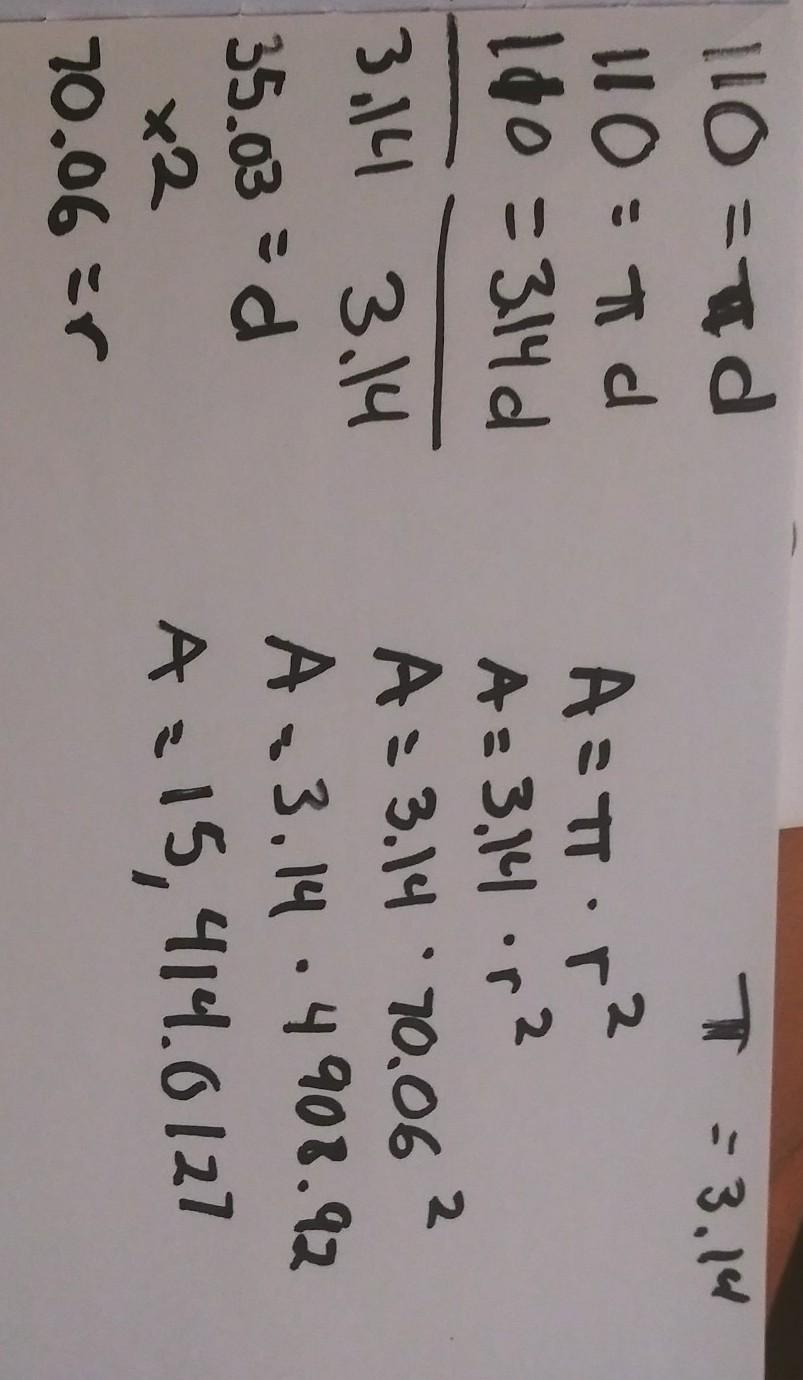 110 = π d
110 = π d
110 = 3.14 d
3.14 3.14
35.03 = d
x2
70.06 = r
π = 3.14
A = π · r²
A = 3.14 · r²
A = 3.14 · 70.06²
A = 3.14 · 4908.92
A = 15,414.6127